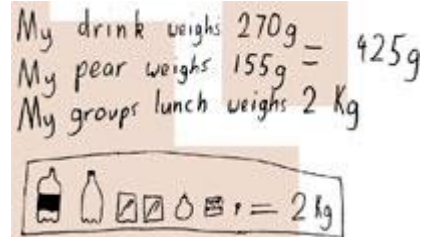 My drink weighs 270g = 425g
My pear weighs 155g
My groups lunch weighs 2 Kg
= 2 Kg